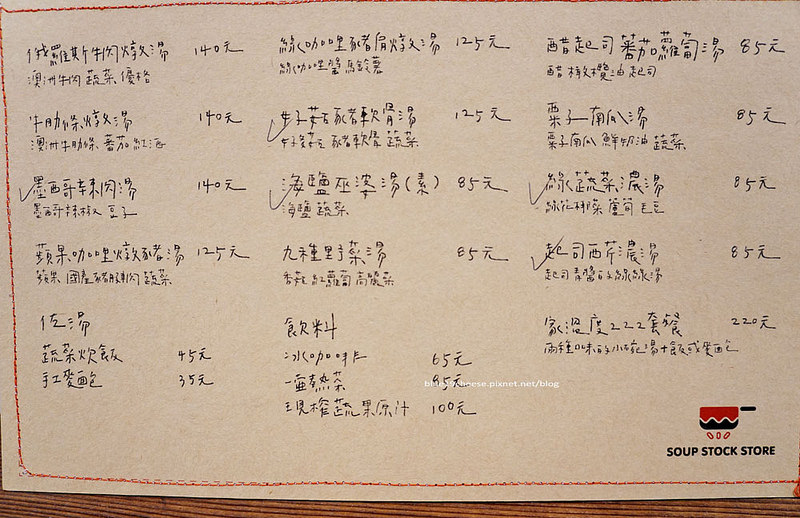 俄羅斯牛肉燉湯 140元
澳洲牛肉 蔬菜 優格
牛肋條燉湯 140元
澳洲牛肋條 蕃茄 紅酒
墨西哥辣肉湯 140元
墨西哥辣椒 豆子
蘋果咖哩燉豬湯 125元
蘋果 國產豬腱肉 蔬菜
佐湯
蔬菜炊飯 45元
手工麥麵包 35元
綠咖哩豬肩燉湯 125元
綠咖哩醬 馬鈴薯
牛蒡豬軟骨湯 125元
豬軟骨 蔬菜
海鹽巫婆湯(素) 85元
海鹽 蔬菜
九種野菜湯 85元
香菇 紅蘿蔔 高麗菜
飲料
冰咖啡 65元
一壺熱茶 85元
現榨蔬果原汁 100元
醋起司蕃茄蘿蔔湯 85元
醋 橄欖油 起司
栗子南瓜湯 85元
栗子南瓜 鮮奶油 蔬菜
綠蔬菜濃湯 85元
綠花椰菜 蘆筍 毛豆
起司西芹濃湯 85元
起司 青醬
家溫度222套餐 220元
兩種口味的小碗湯+飯或麥麵包
cheese.pixnet.net/blog
SOUP STOCK STORE